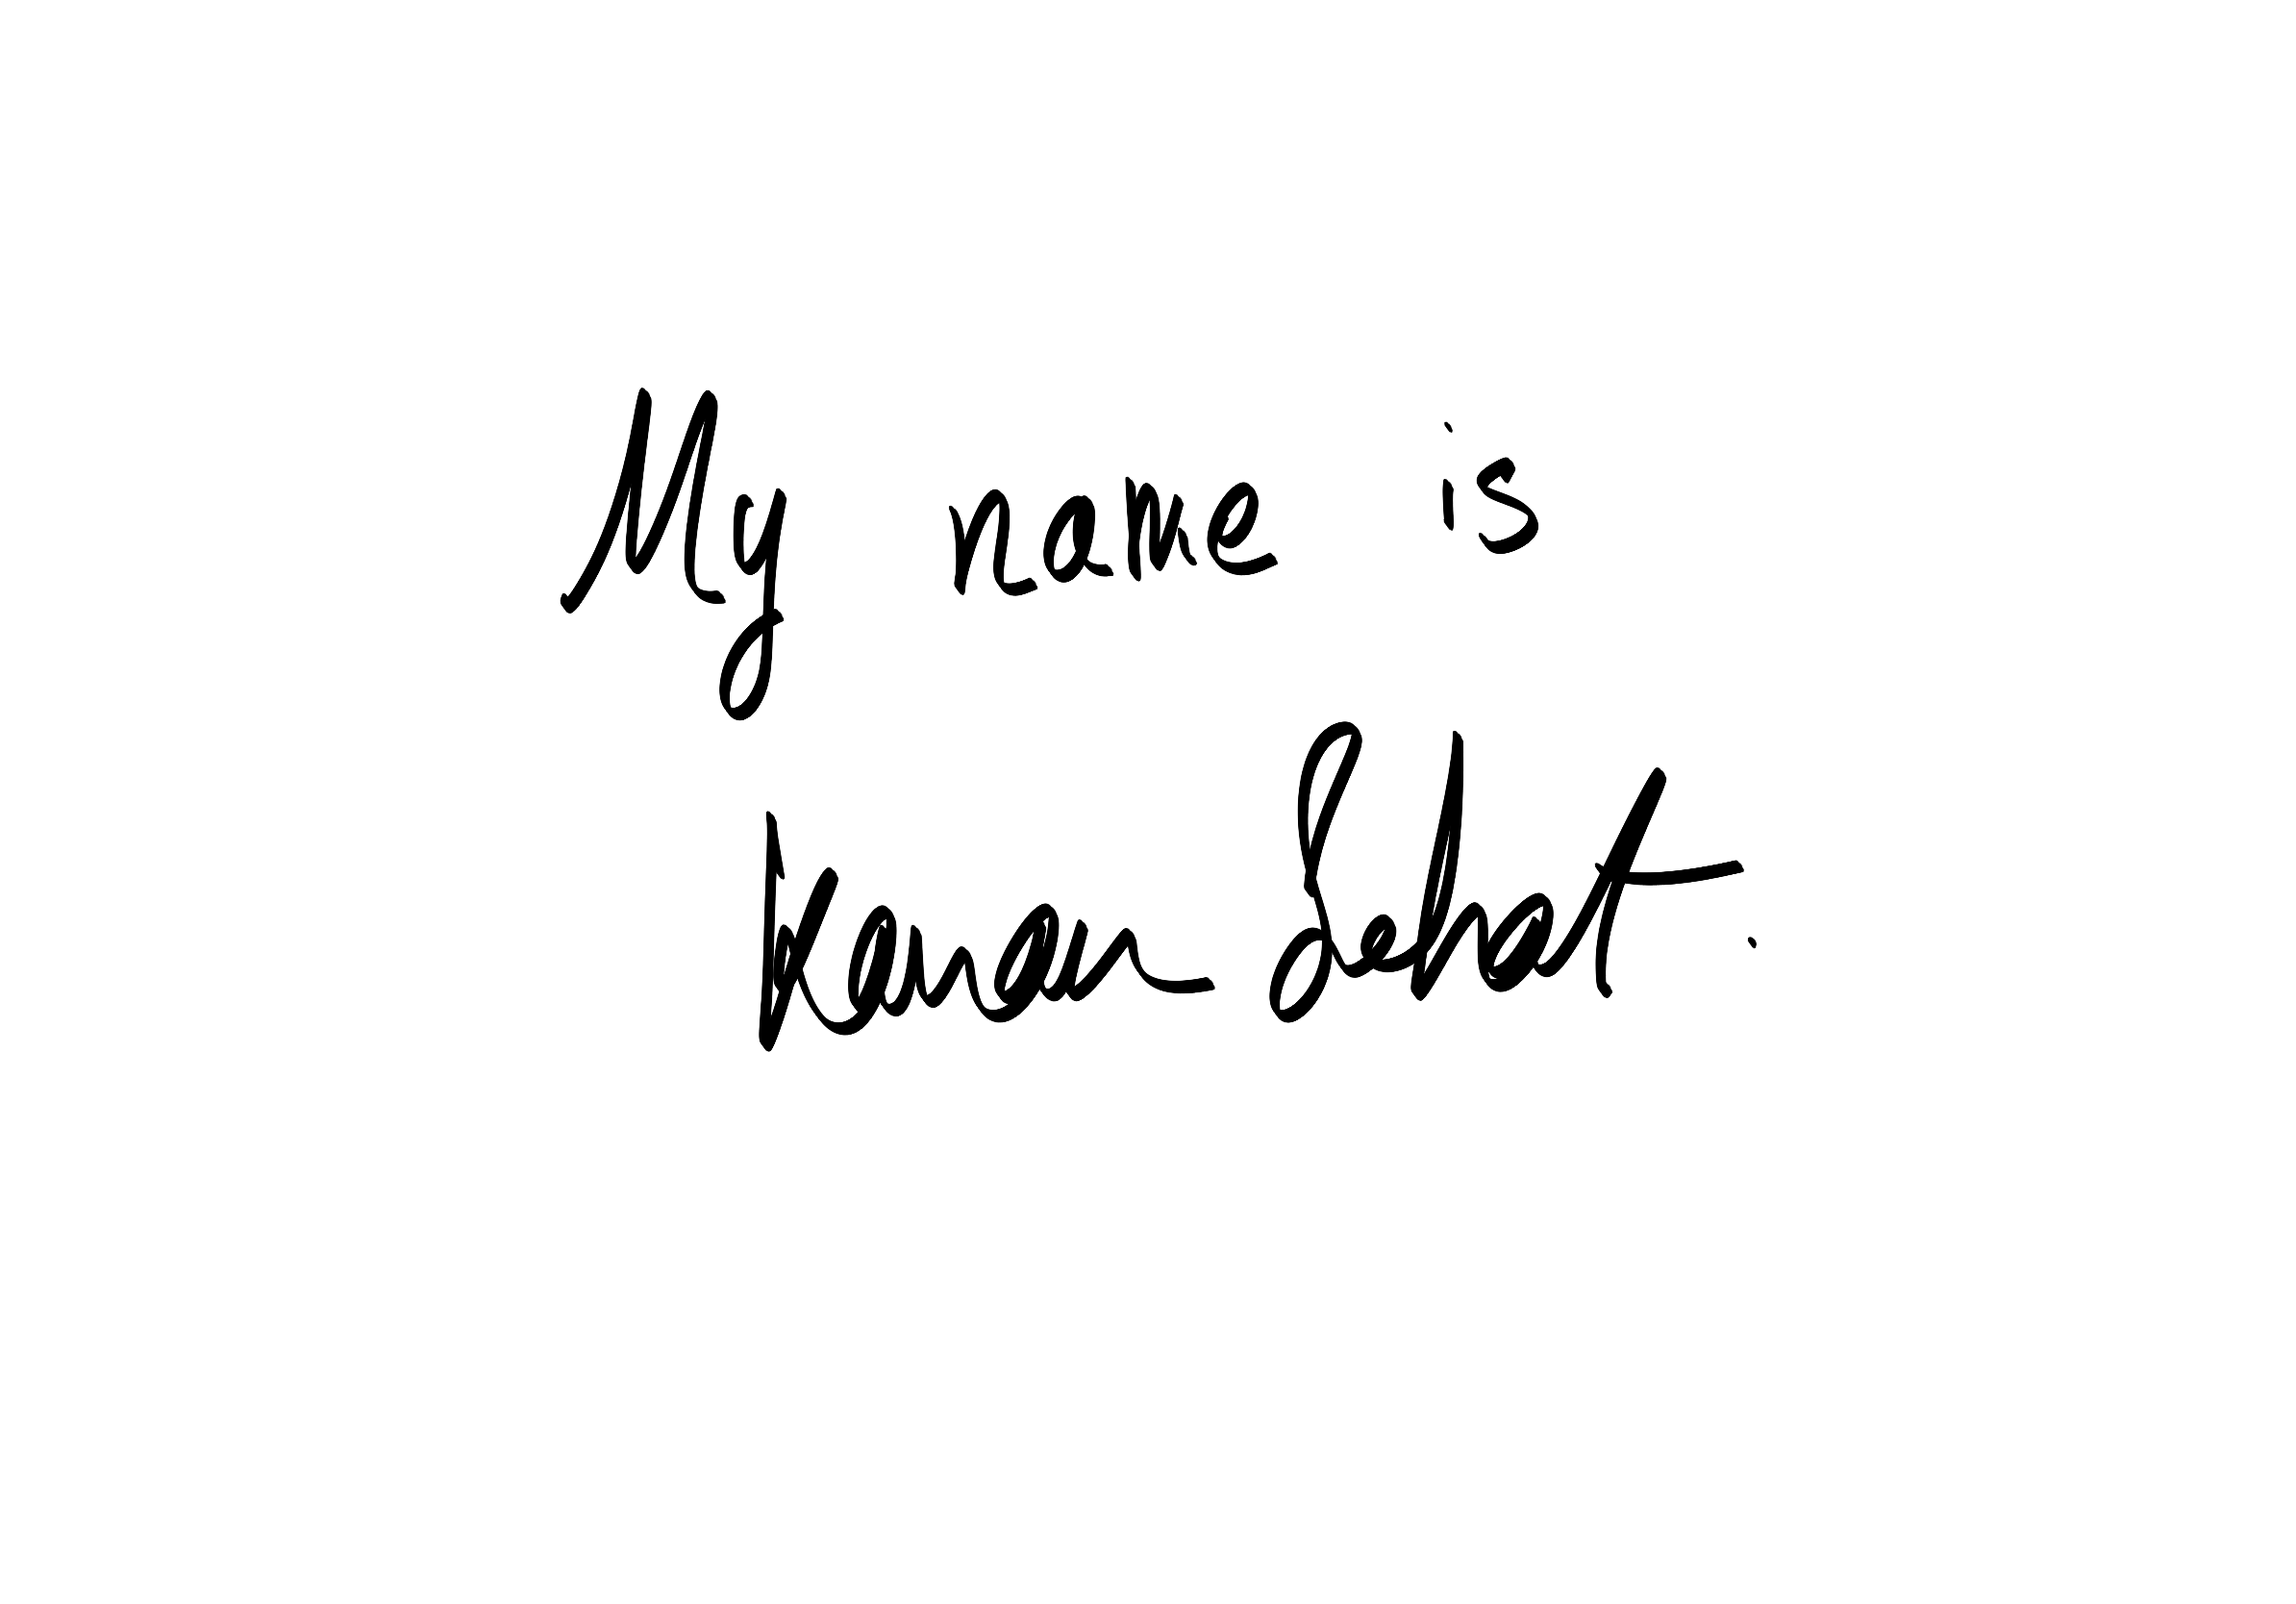 My name is
Karan Sehat.